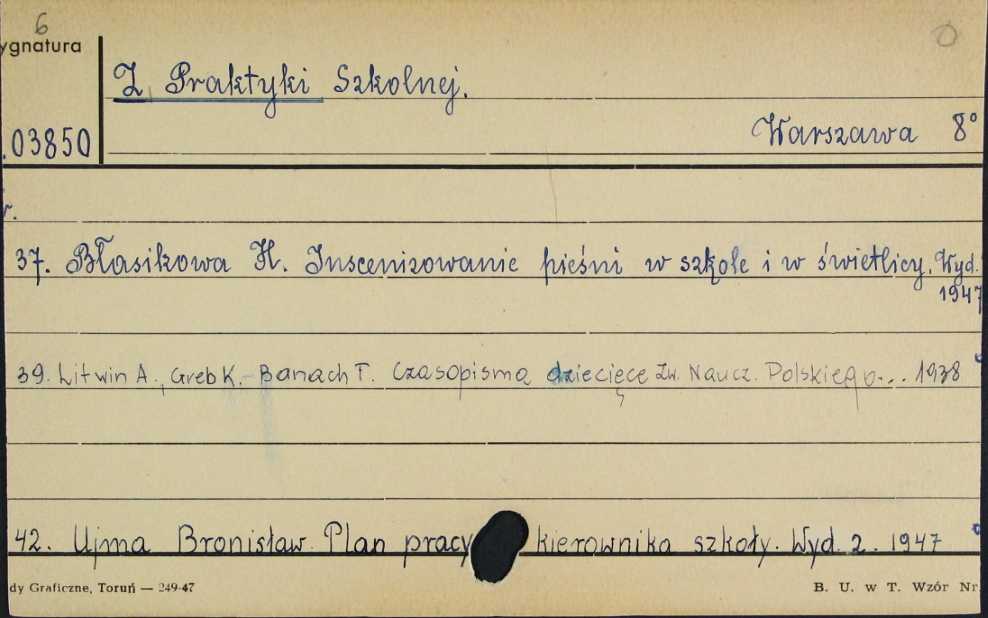 6
ygnatura
Z Praktyki Szkolnej.
Warszawa 8°
.03850
r.
37. Błasikowa H. Inscenizowanie pieśni w szkole i w świetlicy. Wyd.
1947
39. Litwin A., Greb K. - Banach T. Czasopisma dziecięce Zw. Naucz. Polskiego... 1938
42. Ujma Bronisław. Plan pracy kierownika szkoły. Wyd. 2. 1947
dy Graficzne, Toruń — 249-47
B. U. w T. Wzór Nr.